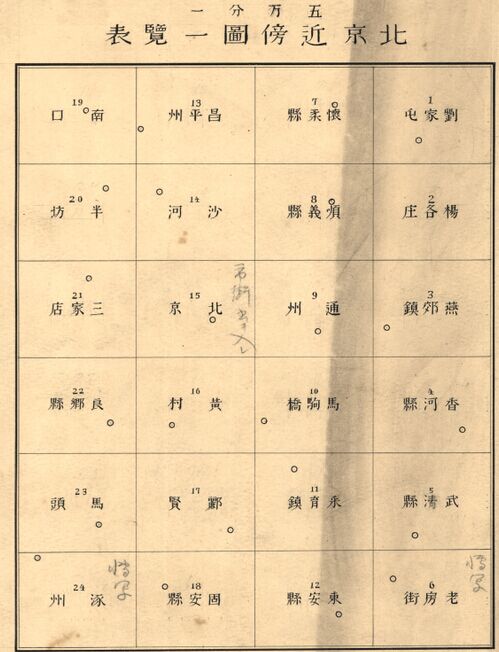 五万分一
北京近傍圖一覽表
1
劉家屯
2
楊各庄
3
燕郊鎮
4
香河縣
5
武清縣
6
老房街
7
懷柔縣
8
順義縣
9
通州
10
馬駒橋
11
育鎮
12
東安縣
13
昌平州
14
沙河
15
北京
16
黃村
17
賢
18
固安縣
19
南口
20
半坊
21
三家店
22
良鄉縣
23
馬頭
24
涿州